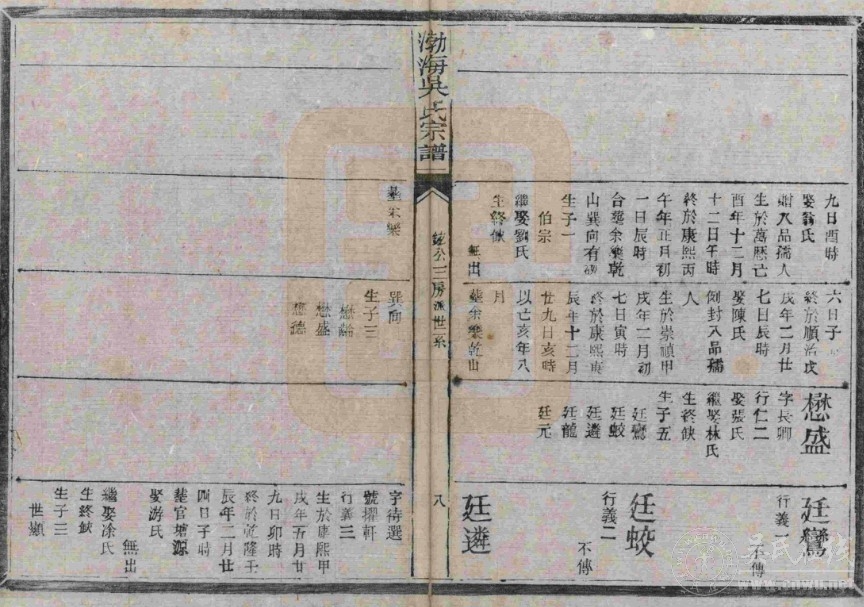 九日酉時
娶翁氏
贈八品孺人
生於萬曆亡
酉年十二月
十二日午時
終於康熙丙
午年正月初
一日辰時
合塟余欒乾
山巽向有碑
生子一
伯宗
繼娶劉氏
生終缺
無出
六日子
終於順治戊
戌年二月廿
七日辰時
娶陳氏
例封八品孺
人
生於崇禎甲
戌年二月初
七日寅時
終於康熙庚
辰年十二月
廿九日亥時
以亡亥年八
月
塟余欒乾山
懋盛
字長卿
行仁二
娶張氏
繼娶林氏
生終缺
生子五
廷鸞
廷蛟
廷遴
廷龍
廷元
廷鸞
行義一
不傳
廷蛟
行義二
不傳
廷遴
渤海吳氏宗譜
公三房派世系
八
巽向
生子三
懋盛
懋德
字待選
號擢軒
行義三
生於康熙甲
戌年五月廿
九日卯時
終於乾隆壬
辰年二月廿
四日子時
塟官塘源
娶游氏
無出
繼娶涂氏
生終缺
生子三
世顯